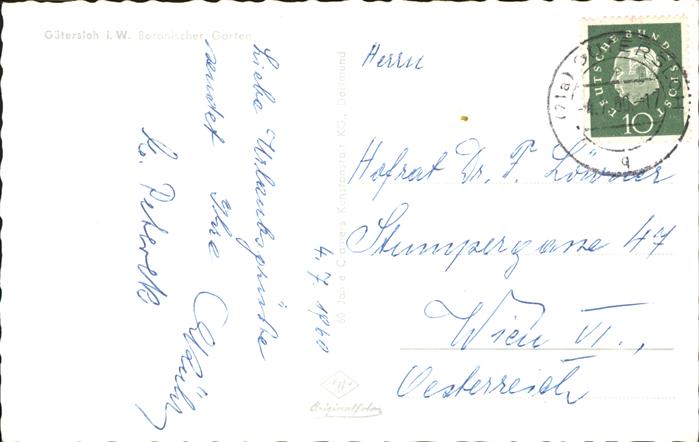 Gütersloh i. W. Botanischer Garten
Liebe Urlaubsgrüße
sendet Ihre
4. 7. 1960
60 Jahre Cramers Kunstanstalt KG., Dortmund
Originalfoto
Herrn
Hofrat Dr. F.
Stumpergasse 47
Wien VI.,
Oesterreich
DEUTSCHE BUNDESPOST
10
(21a) GÜTERSLOH
q